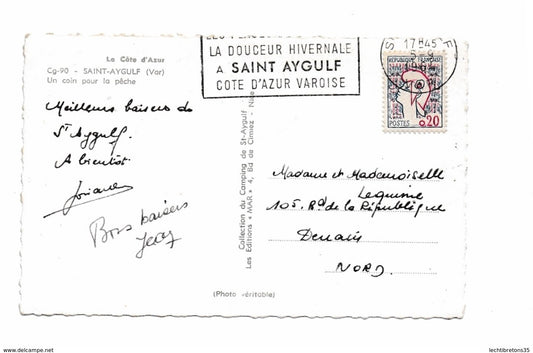 La Côte d'Azur
Cg-90 - SAINT-AYGULF (Var)
Un coin pour la pêche
Meilleurs baisers de
St Aygulf.
A bientôt
Josiane
Bons baisers
(Photo véritable)
Collection du Camping de St-Aygulf
Les Editions "MAR" 4, Bd de Cimiez - Nice
LA DOUCEUR HIVERNALE
A SAINT AYGULF
COTE D'AZUR VAROISE
17H45
5-9
REPUBLIQUE FRANÇAISE
POSTES 0,20
Madame et Mademoiselle
Lequime
105. Rd de la République
Denain
NORD.
lechtibretons35